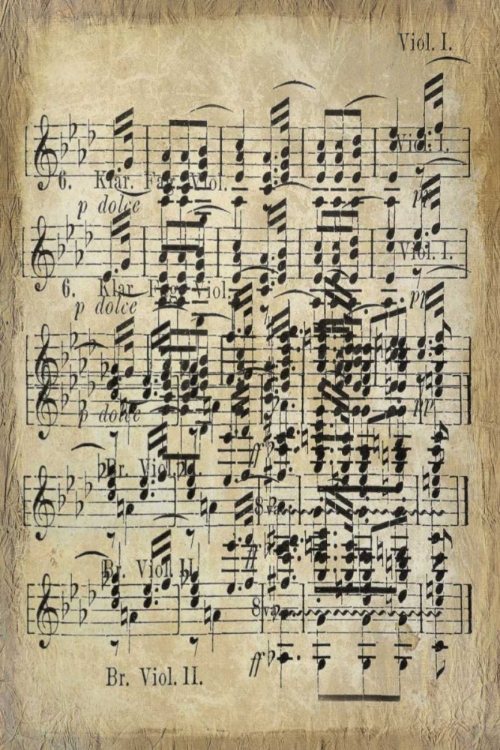 Viol. I.
Viol. I.
6. Klar. Fag. Viol.
p dolce
pp
Viol. I.
6. Klar. Fag. Viol.
p dolce
pp
p dolce
pp
ff
Br. Viol. II.
8va
ff
Br. Viol. II.
8va
ff
Br. Viol. II.